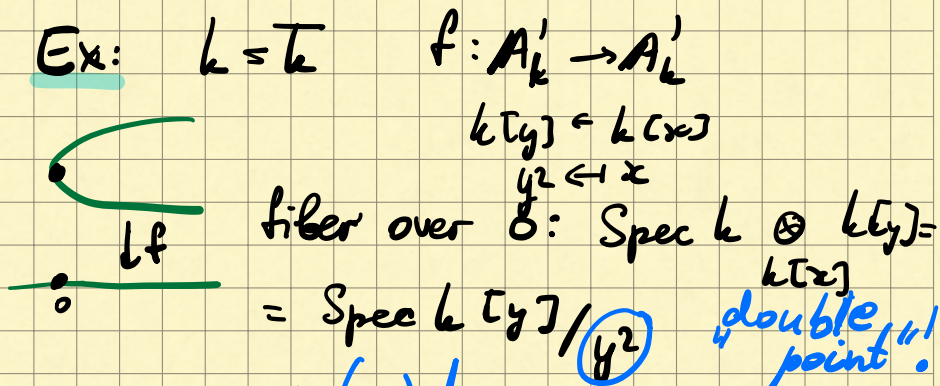 Ex: k = k̅ f : A¹ₖ → A¹ₖ
k[y] ← k[x]
y² ↤ x
↓f
fiber over 0: Spec k ⊗ k[y] =
k[x]
0
= Spec k[y]/y² „double
point"!